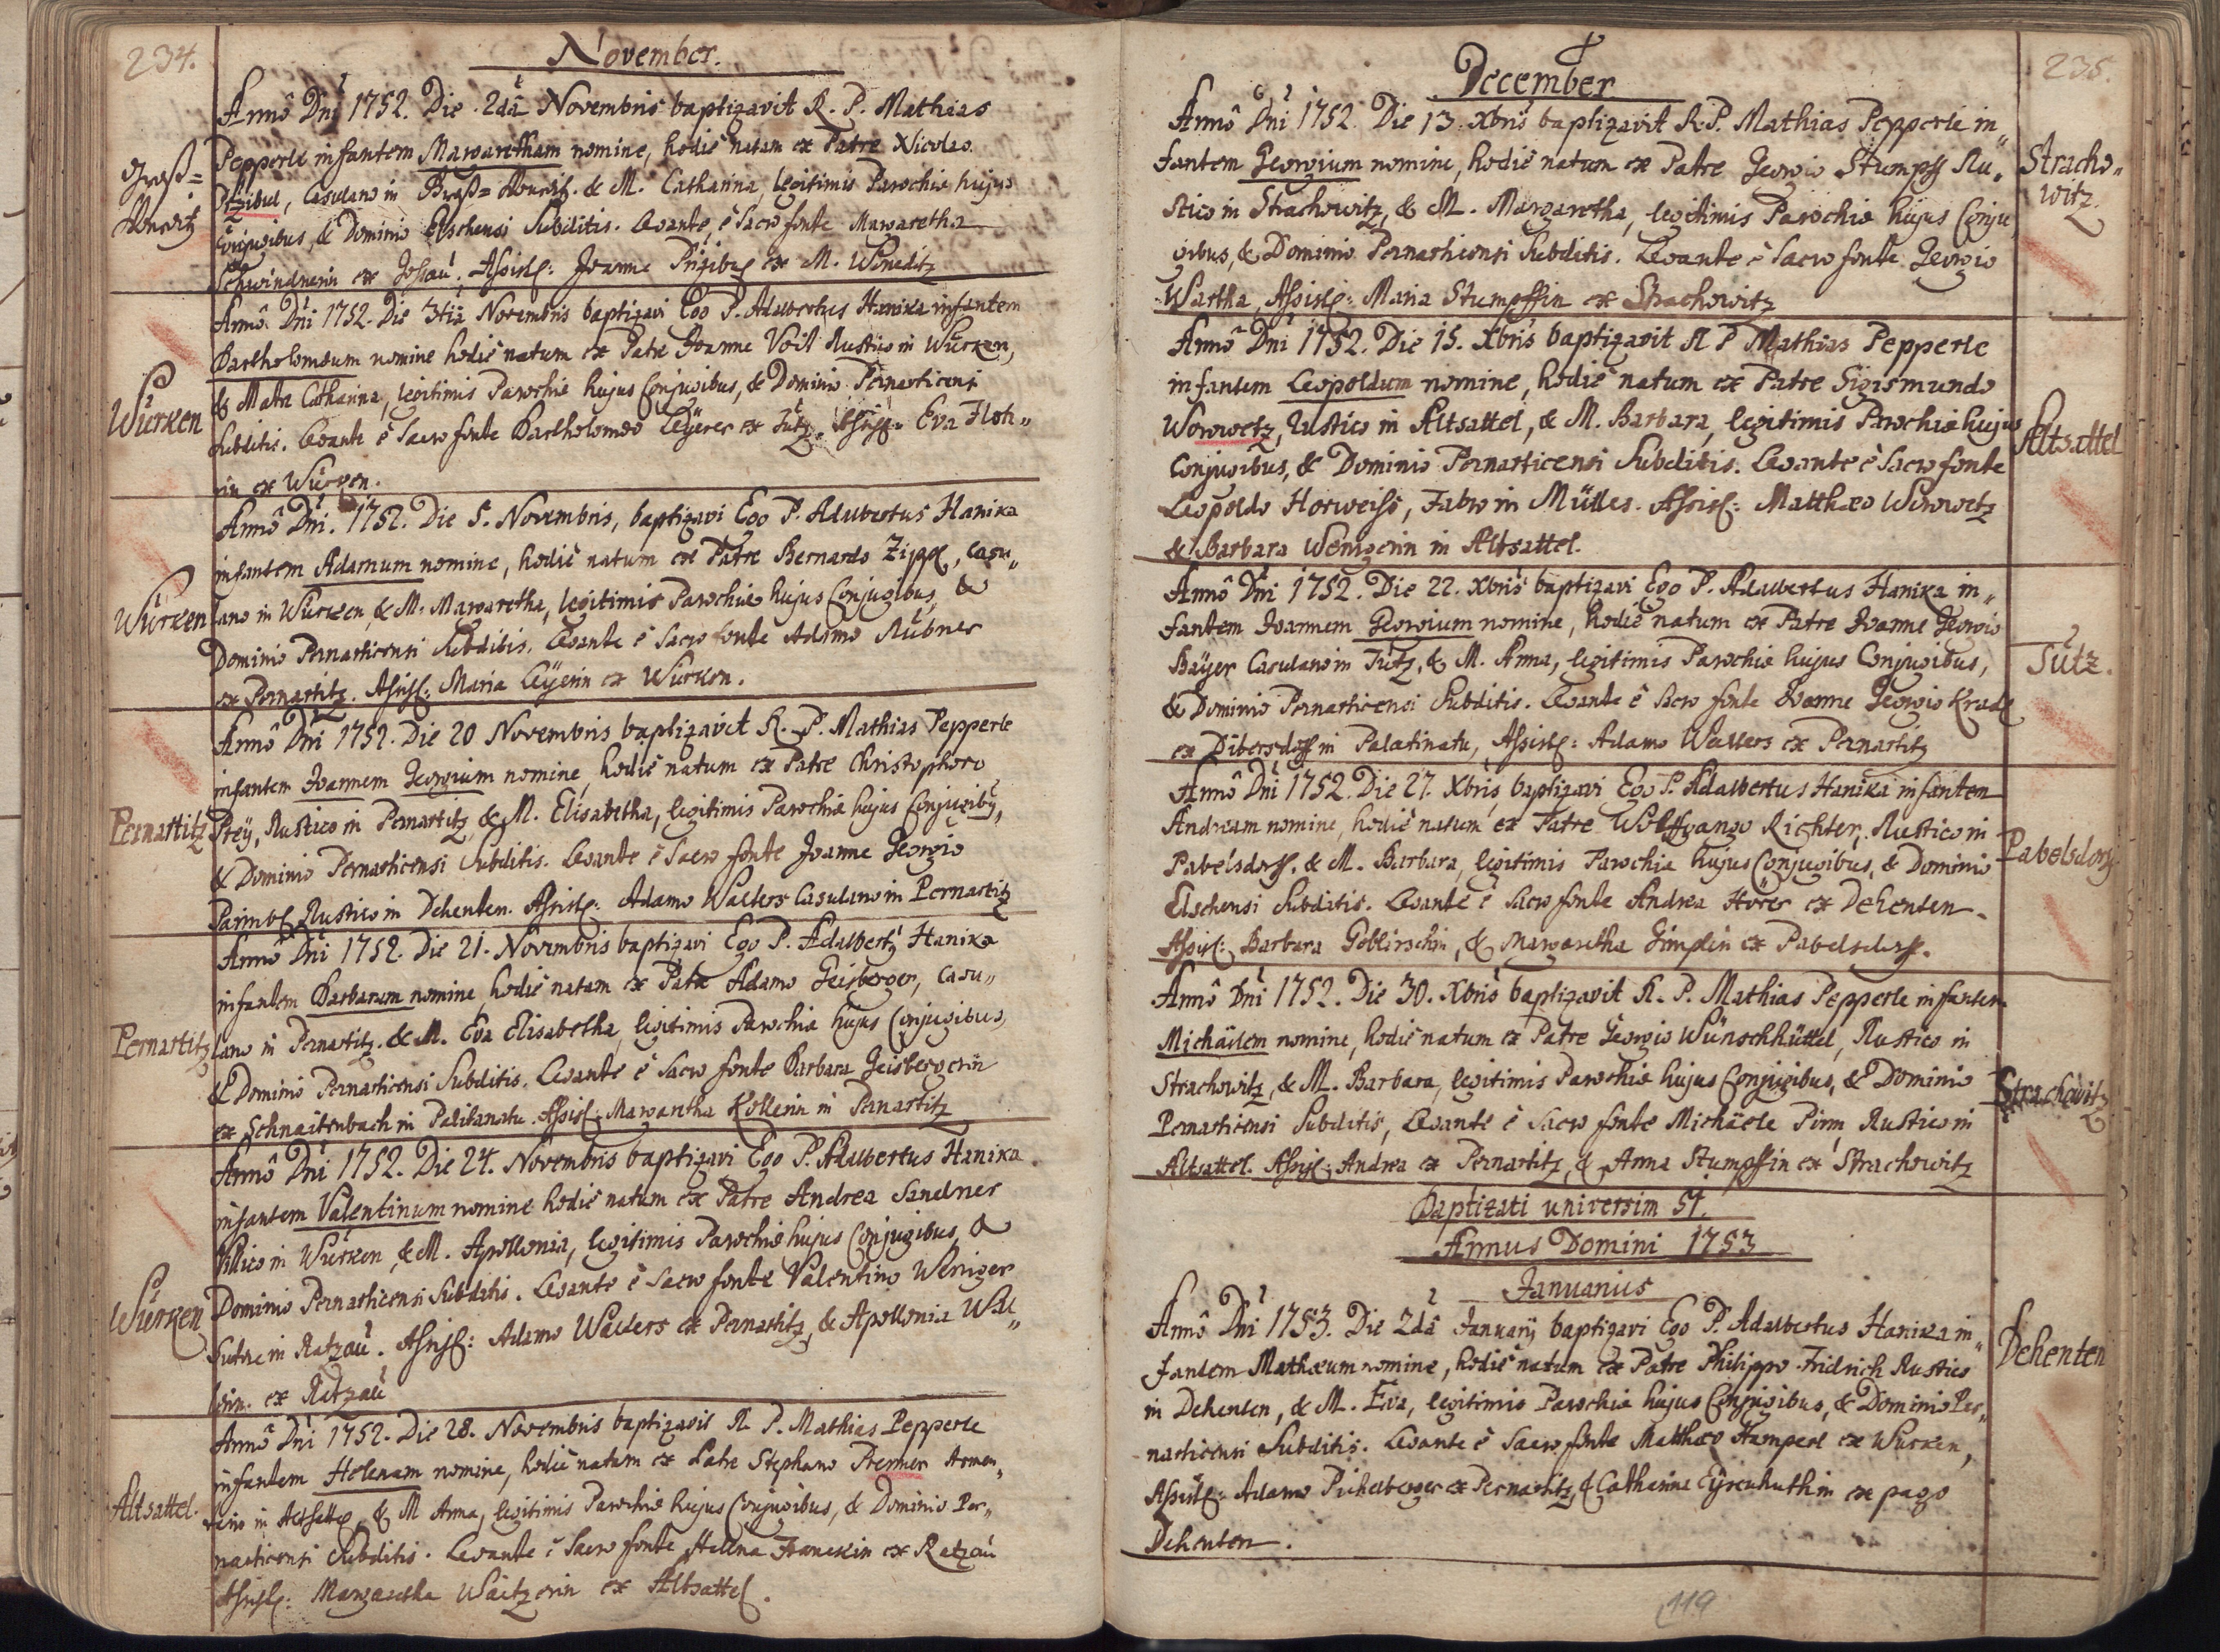 234.
November.
Annô Dni 1752. Die 2dâ Novembris baptizavit R. P. Mathias
Pepperle infantem Margaretham nomine, hodie natam ex Patre Nicolao
Przibul, Casulano in & M. Catharina, legitimis Parochiæ hujus
Conjugibus, & Dominio Elschensi Subditis. Levante è Sacro fonte Margaretha
Schwindnerin ex Joh. Assist: Joanne ex M.
Annô Dni 1752. Die 3tiâ Novembris baptizavi Ego P. Adalbertus Hanika infantem
Bartholomæum nomine hodie natum ex Patre Joanne Voit Rustico in Würken,
Würken
& Matre Catharina, legitimis Parochiæ hujus Conjugibus, & Dominio Pernarticensi
Subditis. Levante è Sacro fonte Bartholomæo Leÿerer ex Tütz. Assist: Eva
rin ex Würken.
Annô Dni. 1752. Die 5. Novembris, baptizavi Ego P. Adalbertus Hanika
infantem Adamum nomine, hodie natum ex Patre Bernardo Zippl, Casu„
Würken
lano in Würken, & M. Margaretha, legitimis Parochiæ hujus Conjugibus, &
Dominio Pernarticensi Subditis. Levante è Sacro fonte Adamo Rübner
ex Pernartitz. Assist: Maria Leÿerin ex Würken.
Annô Dni 1752. Die 20 Novembris baptizavit R. P. Mathias Pepperle
infantem Joannem Georgium nomine, hodie natum ex Patre Christophoro
Pernartitz
Preÿ, Rustico in Pernartitz, & M. Elisabetha, legitimis Parochiæ hujus Conjugibus,
& Dominio Pernarticensi Subditis. Levante è Sacro fonte Joanne Georgio
Rustico in Dehenten. Assist: Adamo Walters Casulano in Pernartitz
Annô Dni 1752. Die 21. Novembris baptizavi Ego P. Adalbert9 Hanika
infantem Barbaram nomine, hodie natam ex Patre Adamo Geisberger, Casu„
Pernartitz
lano in Pernartitz. & M. Eva Elisabetha, legitimis Parochiæ hujus Conjugibus,
& Dominio Pernarticensi Subditis. Levante è Sacro fonte Barbara Geisbergerin
ex Schnaitenbach in Palitanatu. Assist: Margaretha Kollerin in Pernartitz
Annô Dni 1752. Die 24. Novembris baptizavi Ego P. Adalbertus Hanika
infantem Valentinum nomine hodie natum ex Patre Andrea Sandner
Villico in Würken, & M. Apollonia, legitimis Parochiæ hujus Conjugibus, &
Würken
Dominio Pernarticensi Subditis. Levante è Sacro fonte Valentino Weniger
Sutore in Ratzau. Assist: Adamo Walters ex Pernartitz, & Apollonia Wal„
lerin. ex Ratzau
Annô Dni 1752. Die 28. Novembris baptizavit R. P. Mathias Pepperle
infantem Helenam nomine, hodie natam ex Patre Stephano Premer Armen„
Altsattel.
tario in Altsattel, & M Anna, legitimis Parochiæ hujus Conjugibus, & Dominio Per„
narticensi Subditis. Levante è Sacro fonte Helena Franckin ex Ratzau
Assist: Margaretha Waitzerin ex Altsattel.
235.
December
Annô Dni 1752. Die 13. Xbris baptizavit R. P. Mathias Pepperle in„
fantem Georgium nomine, hodie natum ex Patre Georgio Stumpf Ru„
Stracho„
witz.
stico in Strachowitz, & M. Margaretha, legitimis Parochiæ hujus Conju„
gibus, & Dominio Pernarticensi Subditis. Levante è Sacro fonte Georgio
Wartha, Assist: Maria Stumpffin ex Strachowitz
Annô Dni 1752. Die 15. Xbris baptizavit R P Mathias Pepperle
infantem Leopoldum nomine, hodie natum ex Patre Sigismundo
Worwetz, Rustico in Altsattel, & M. Barbara, legitimis Parochiæ hujus
Altsattel
Conjugibus, & Dominio Pernarticensi Subditis. Levante è Sacro fonte
Leopoldo Horweiss, Fabro in Mülles. Assist: Matthæo Worwetz
& Barbara Wenigerin in Altsattel.
Annô Dni 1752. Die 22. Xbris baptizavi Ego P. Adalbertus Hanika in„
fantem Joannem Georgium nomine, hodie natum ex Patre Joanne Georgio
Baÿer Casulano in Tütz, & M. Anna, legitimis Parochiæ hujus Conjugibus,
Tütz.
& Dominio Pernarticensi Subditis. Levante è Sacro fonte Joanne Georgio
ex Dibersdorf in Palatinatu, Assist: Adamo Walters ex Pernartitz
Annô Dni 1752. Die 27. Xbris baptizavi Ego P. Adalbertus Hanika infantem
Andream nomine, hodie natum ex Patre Wolffgango Richter, Rustico in
Pabelsdorf
Pabelsdorf. & M. Barbara, legitimis Parochiæ hujus Conjugibus, & Dominio
Elschensi Subditis. Levante è Sacro fonte Andrea Hörer ex Dehenten.
Assist: Barbara Goblirschin, & Margaretha Gimplin ex Pabelsdorf.
Annô Dni 1752. Die 30. Xbris baptizavit R. P. Mathias Pepperle infantem
Michäelem nomine, hodie natum ex Patre Georgio Wünschhüttel, Rustico in
Strachowitz, & M. Barbara, legitimis Parochiæ hujus Conjugibus, & Dominio
Strachowitz
Pernarticensi Subditis, Levante è Sacro fonte Michäele Pirm Rustico in
Altsattel. Assist: Andrea ex Pernartitz, & Anna Stumpffin ex Strachowitz
Baptizati universim 51.
Annus Domini 1753
Januarius
Annô Dni 1753. Die 2dâ Januarij baptizavi Ego P. Adalbertus Hanika in„
fantem Mathæum nomine, hodie natum ex Patre Philippo Fridrich Rustico
Dehenten
in Dehenten, & M. Eva, legitimis Parochiæ hujus Conjugibus, & Dominio Per„
narticensi Subditis. Levante è Sacro fonte Matthæo Hamperl ex Würken,
Assist: Adamo Pichelberger ex Pernartitz, & Catharina ex pago
Dehenten.
119